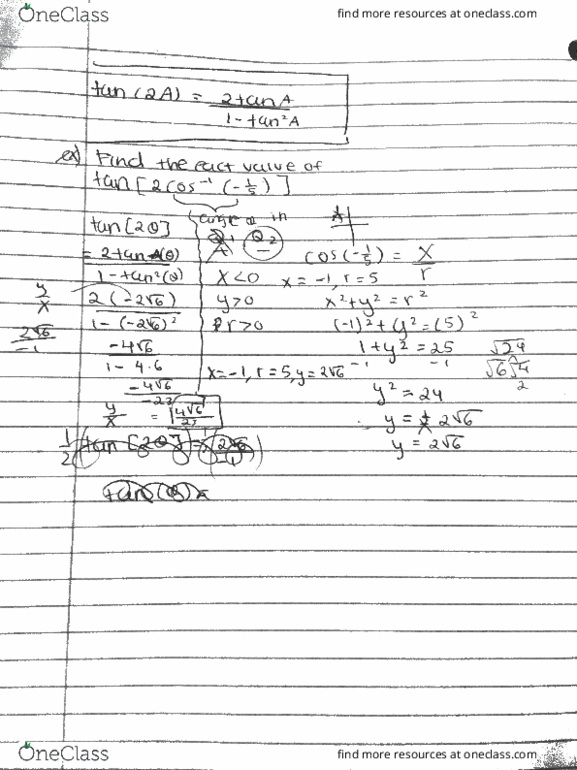 OneClass
find more resources at oneclass.com
tan (2A) = 2tanA
1-tan²A
ex) Find the eact value of
tan [2cos⁻¹ (-1/5)]
tan [2θ]
= 2tan(θ)
1-tan²(θ)
2(-2√6)
1-(-2√6)²
-4√6
1-4.6
-4√6
-23
= 4√6
23
y
x
2√6
-1
y
x
Q2
x<0
y>0
r>0
x=-1, r=5, y=2√6
cos(-1/5) = x
r
x=-1, r=5
x²+y²=r²
(-1)²+(y²=(5)²
1+y²=25
-1 -1
y²=24
y=± 2√6
y=2√6
√24
√6√4
2
1
2
tan [2θ] =
tan(θ)
OneClass
find more resources at oneclass.com